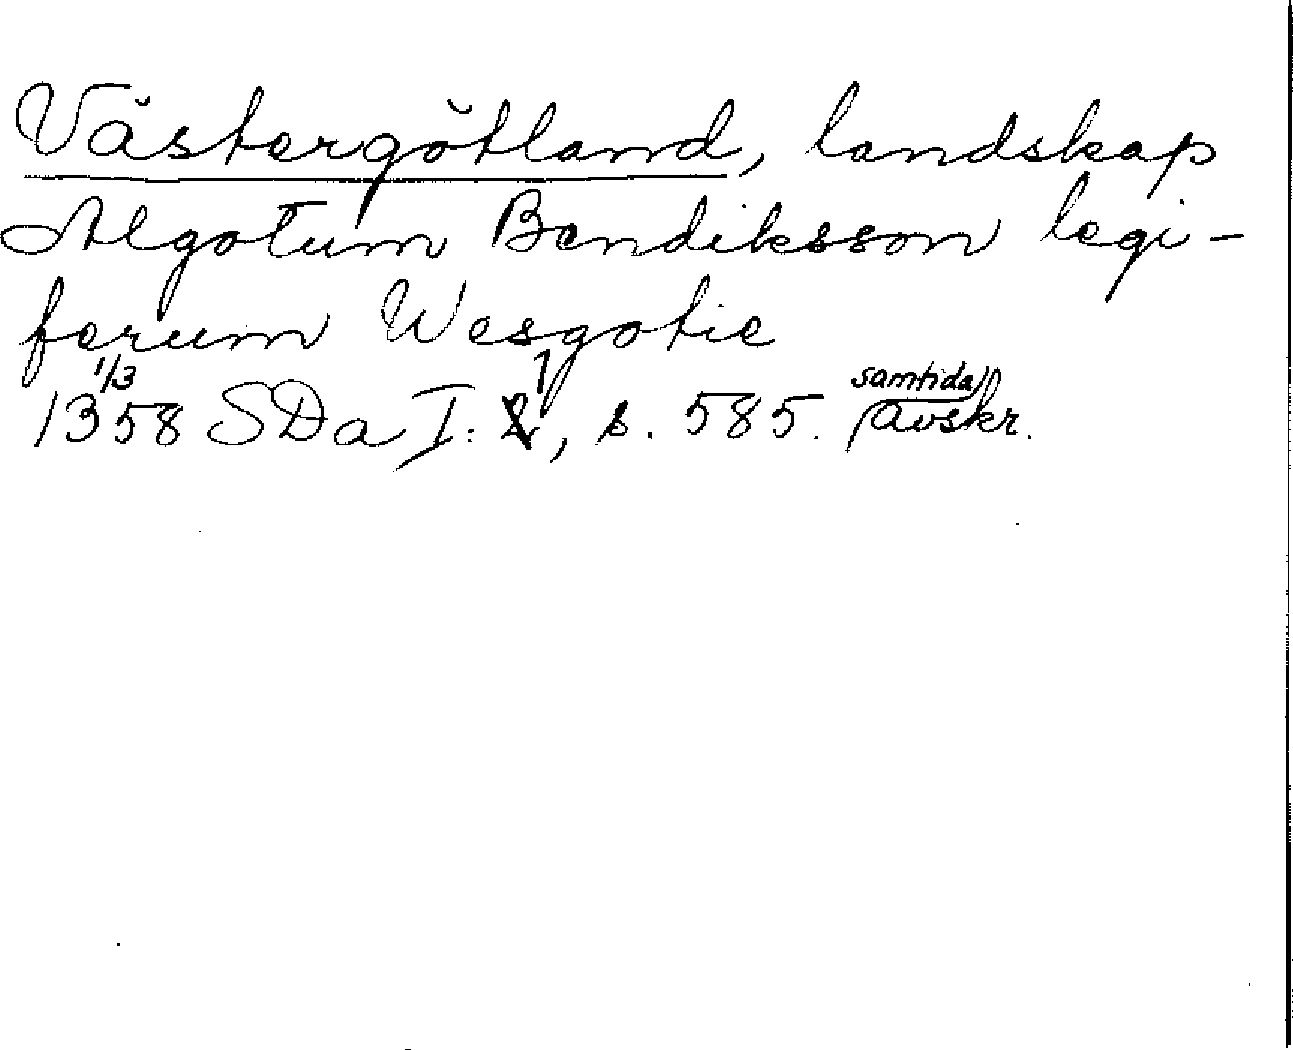 Västergötland, landskap
Algotum Bendiksson legi-
ferum Wesgotie
1358 1/3 SDa I: 1, s. 585. samtida avskr.